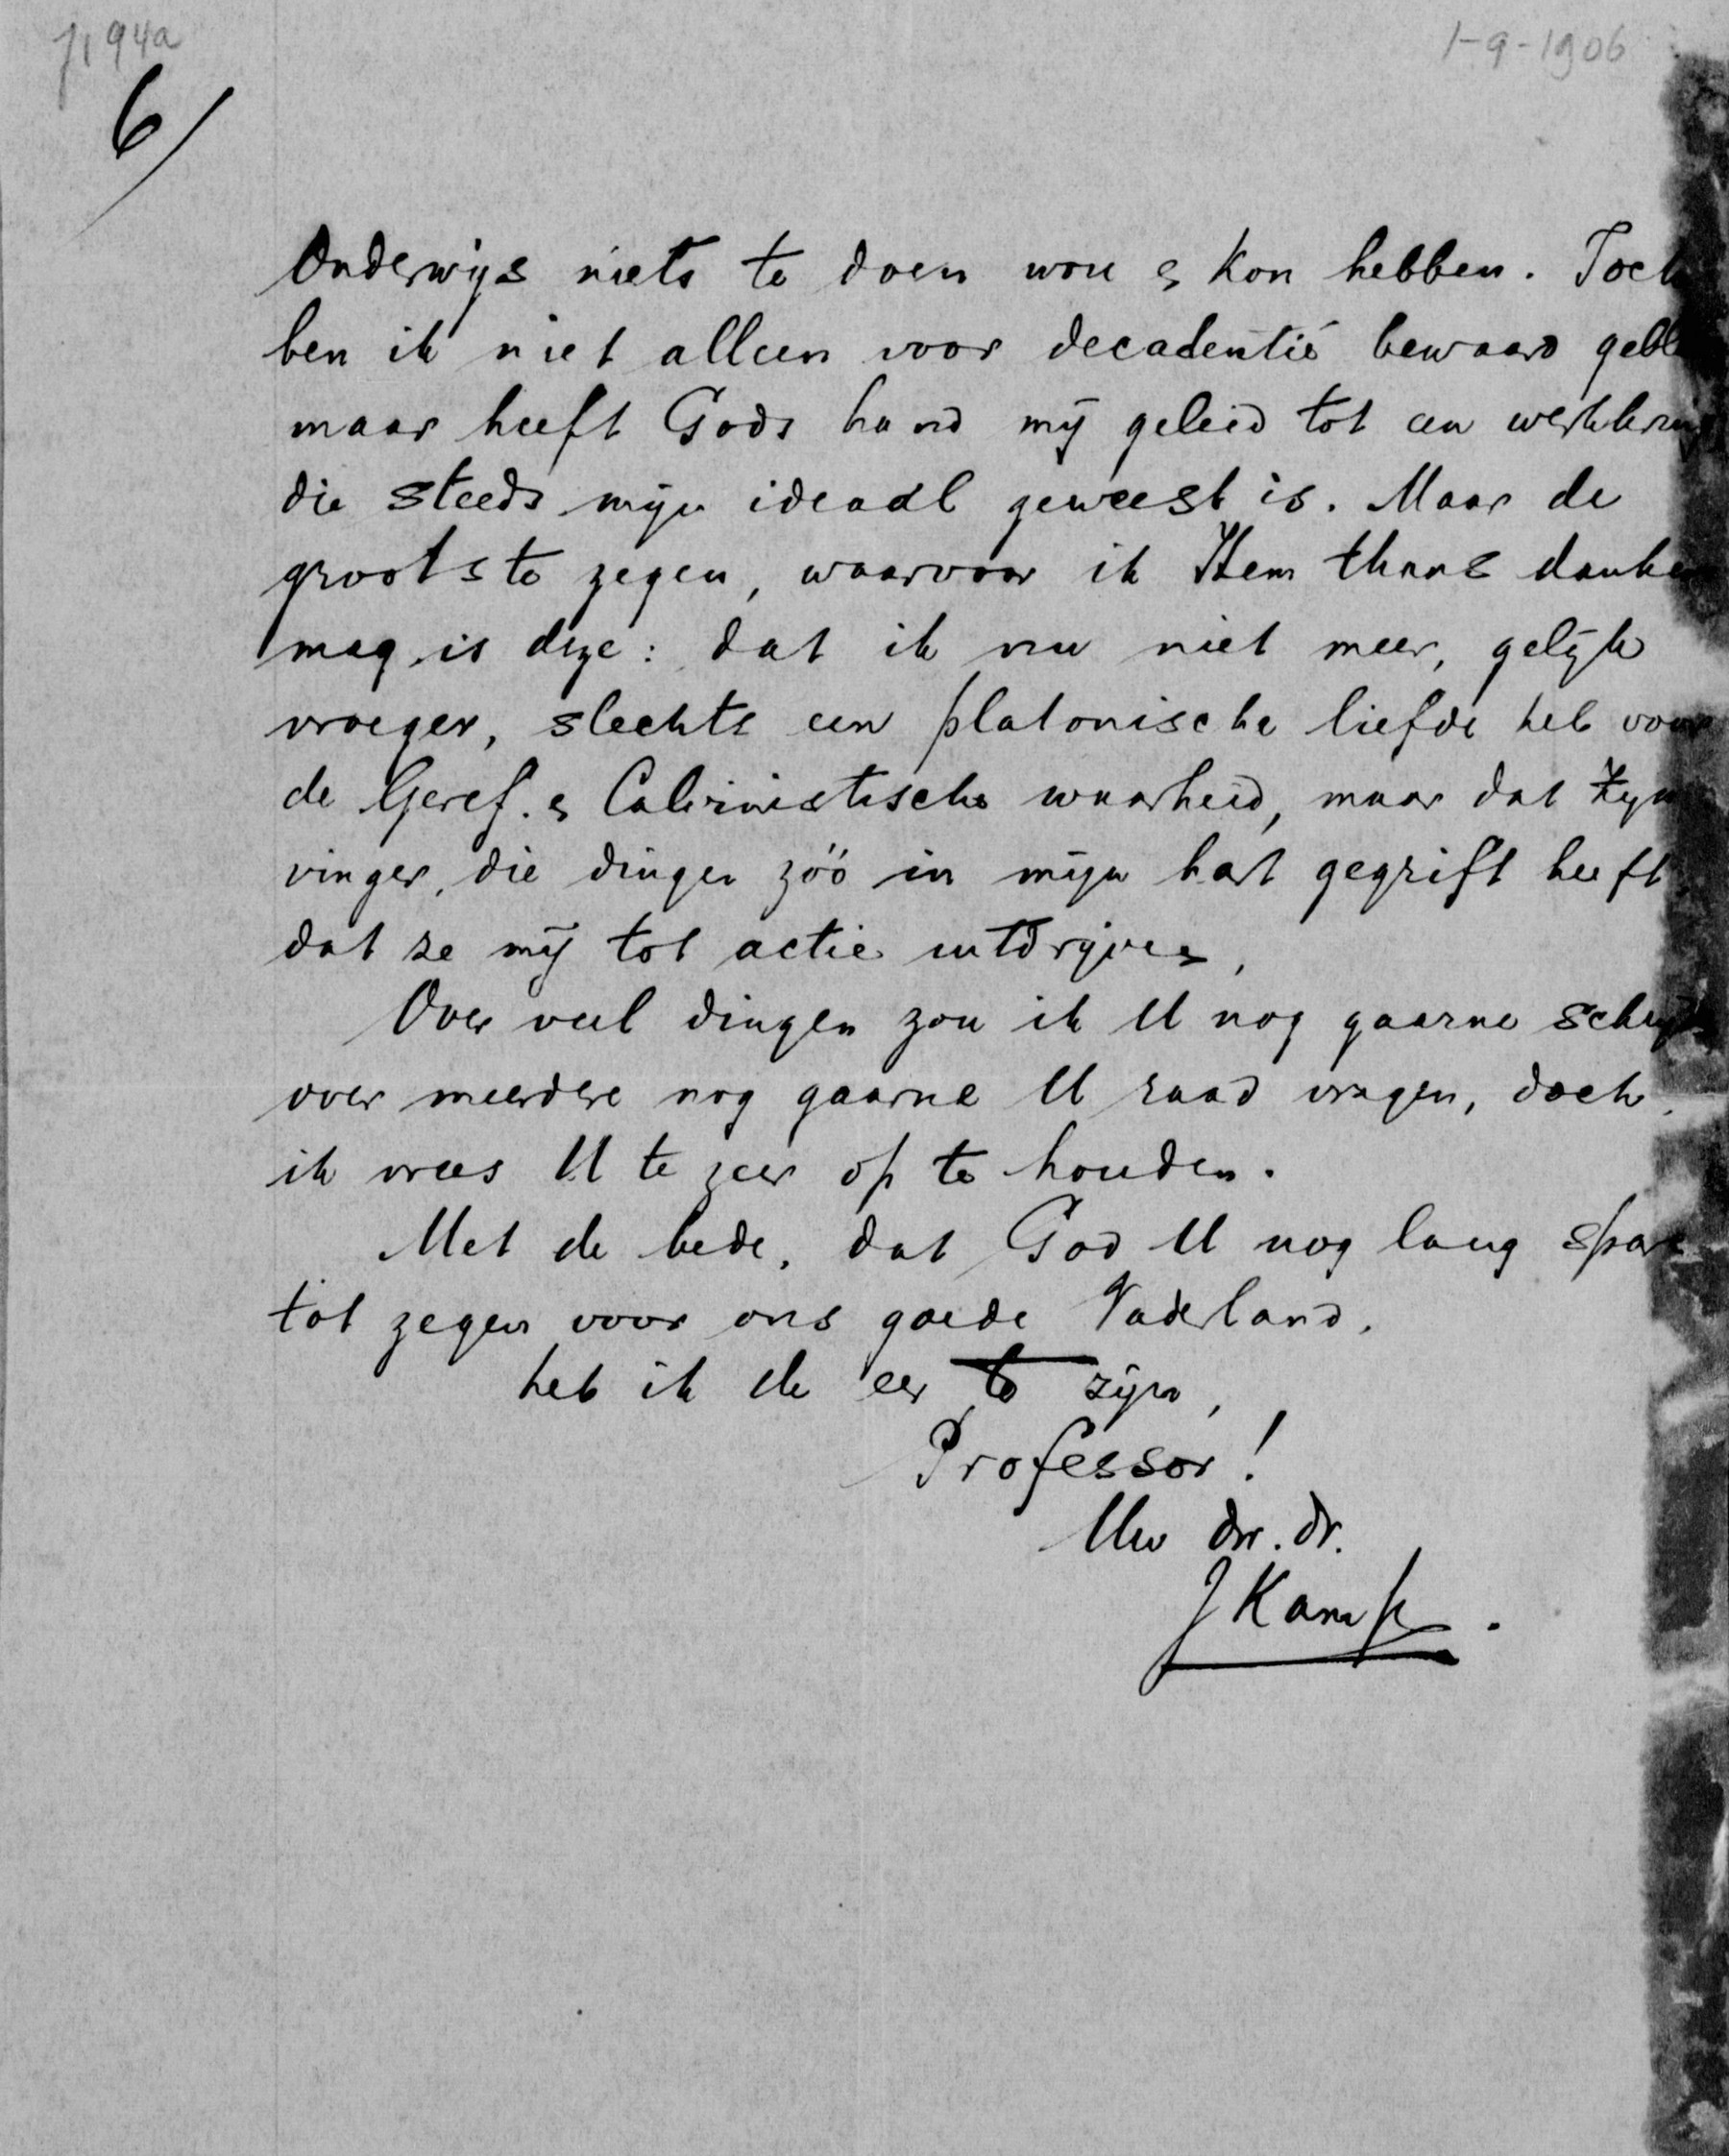 7194a
1-9-1906
6/
Onderwijs niets te doen wou & kon hebben. Toch
ben ik niet alleen voor decadentie bewaard gebl
maar heeft Gods hand mij geleid tot een werkkring
die steeds mijn ideaal geweest is. Maar de
grootste zegen, waarvoor ik Hem thans danken
mag is deze: dat ik nu niet meer, gelijk
vroeger, slechts een platonische liefde heb voor
de Geref. & Calvinistische waarheid, maar dat Zijn
vinger, die dingen zóó in mijn hart gegrift heeft,
dat ze mij tot actie uitdrijven.
Over veel dingen zou ik U nog gaarne schrij
over meerdere nog gaarne U raad vragen, doch
ik vrees U te zeer op te houden.
Met de bede, dat God U nog lang spare
tot zegen voor ons goede Vaderland,
heb ik de eer te zijn,
Professor!
Uw dw. dr.
J Kamp.